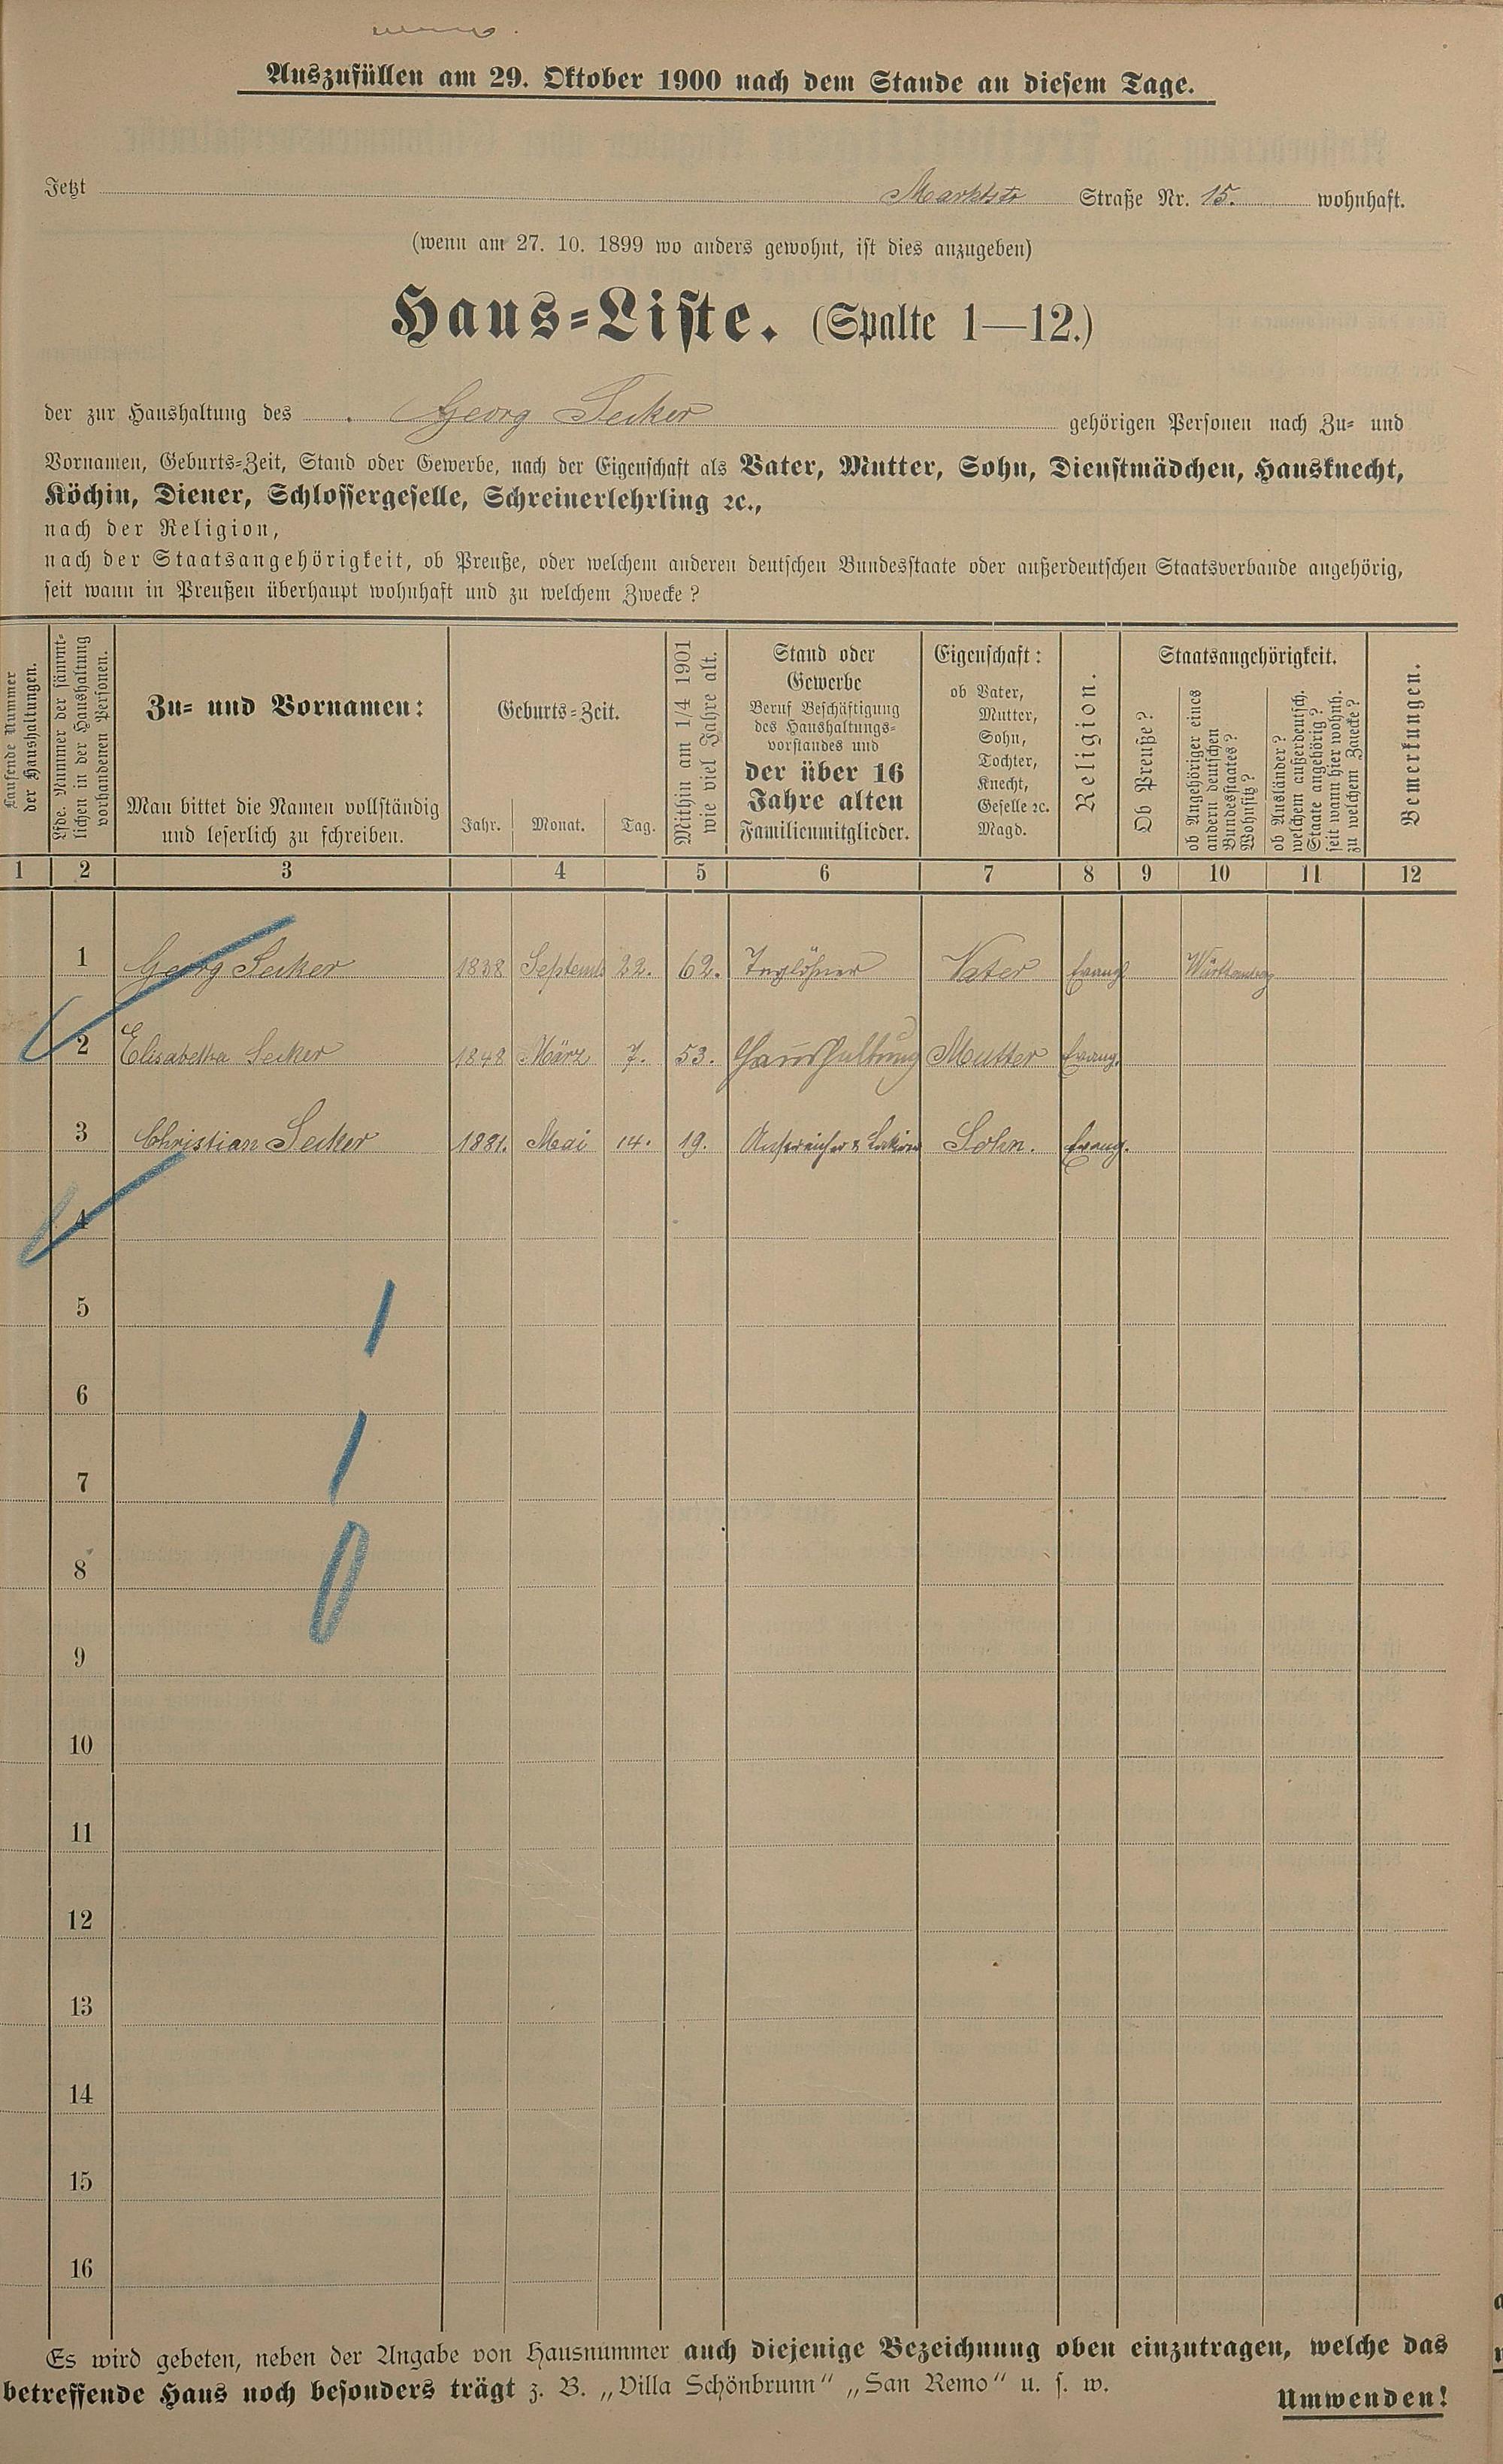 Auszufüllen am 29. Oktober 1900 nach dem Stande an diesem Tage.
Jetzt Marktstr Straße Nr. 15. wohnhaft.
(wenn am 27. 10. 1899 wo anders gewohnt, ist dies anzugeben)
Haus-Liste. (Spalte 1—12.)
der zur Haushaltung des Georg Secker gehörigen Personen nach Zu- und
Vornamen, Geburts-Zeit, Stand oder Gewerbe, nach der Eigenschaft als Vater, Mutter, Sohn, Dienstmädchen, Hausknecht,
Köchin, Diener, Schlossergeselle, Schreinerlehrling ꝛc.,
nach der Religion,
nach der Staatsangehörigkeit, ob Preuße, oder welchem anderen deutschen Bundesstaate oder außerdeutschen Staatsverbande angehörig,
seit wann in Preußen überhaupt wohnhaft und zu welchem Zwecke?
Laufende Nummer
der Haushaltungen.
Lfde. Nummer der sämmt-
lichen in der Haushaltung
vorhandenen Personen.
Zu- und Vornamen:
Man bittet die Namen vollständig
und leserlich zu schreiben.
Geburts-Zeit.
Jahr. Monat. Tag.
Mithin am 1/4 1901
wie viel Jahre alt.
Stand oder
Gewerbe
Beruf Beschäftigung
des Haushaltungs-
vorstandes und
der über 16
Jahre alten
Familienmitglieder.
Eigenschaft:
ob Vater,
Mutter,
Sohn,
Tochter,
Knecht,
Geselle ꝛc.
Magd.
Religion.
Staatsangehörigkeit.
Ob Preuße?
ob Angehöriger eines
andern deutschen
Bundesstaates?
Wohnsitz?
ob Ausländer?
welchem außerdeutsch.
Staate angehörig?
seit wann hier wohnh.
zu welchem Zwecke?
Bemerkungen.
1 2 3 4 5 6 7 8 9 10 11 12
1 Georg Secker 1838 Septemb 22. 62. Taglöhner Vater Evang Württemberg
2 Elisabetha Secker 1848 März 7. 53. Haushaltung Mutter Evang.
3 Christian Secker 1881. Mai 14. 19. Anstreicher & Lakirer Sohn. Evang.
4
5
6
7
8
9
10
11
12
13
14
15
16
Es wird gebeten, neben der Angabe von Hausnummer auch diejenige Bezeichnung oben einzutragen, welche das
betreffende Haus noch besonders trägt z. B. „Villa Schönbrunn“ „San Remo“ u. s. w.
Umwenden!